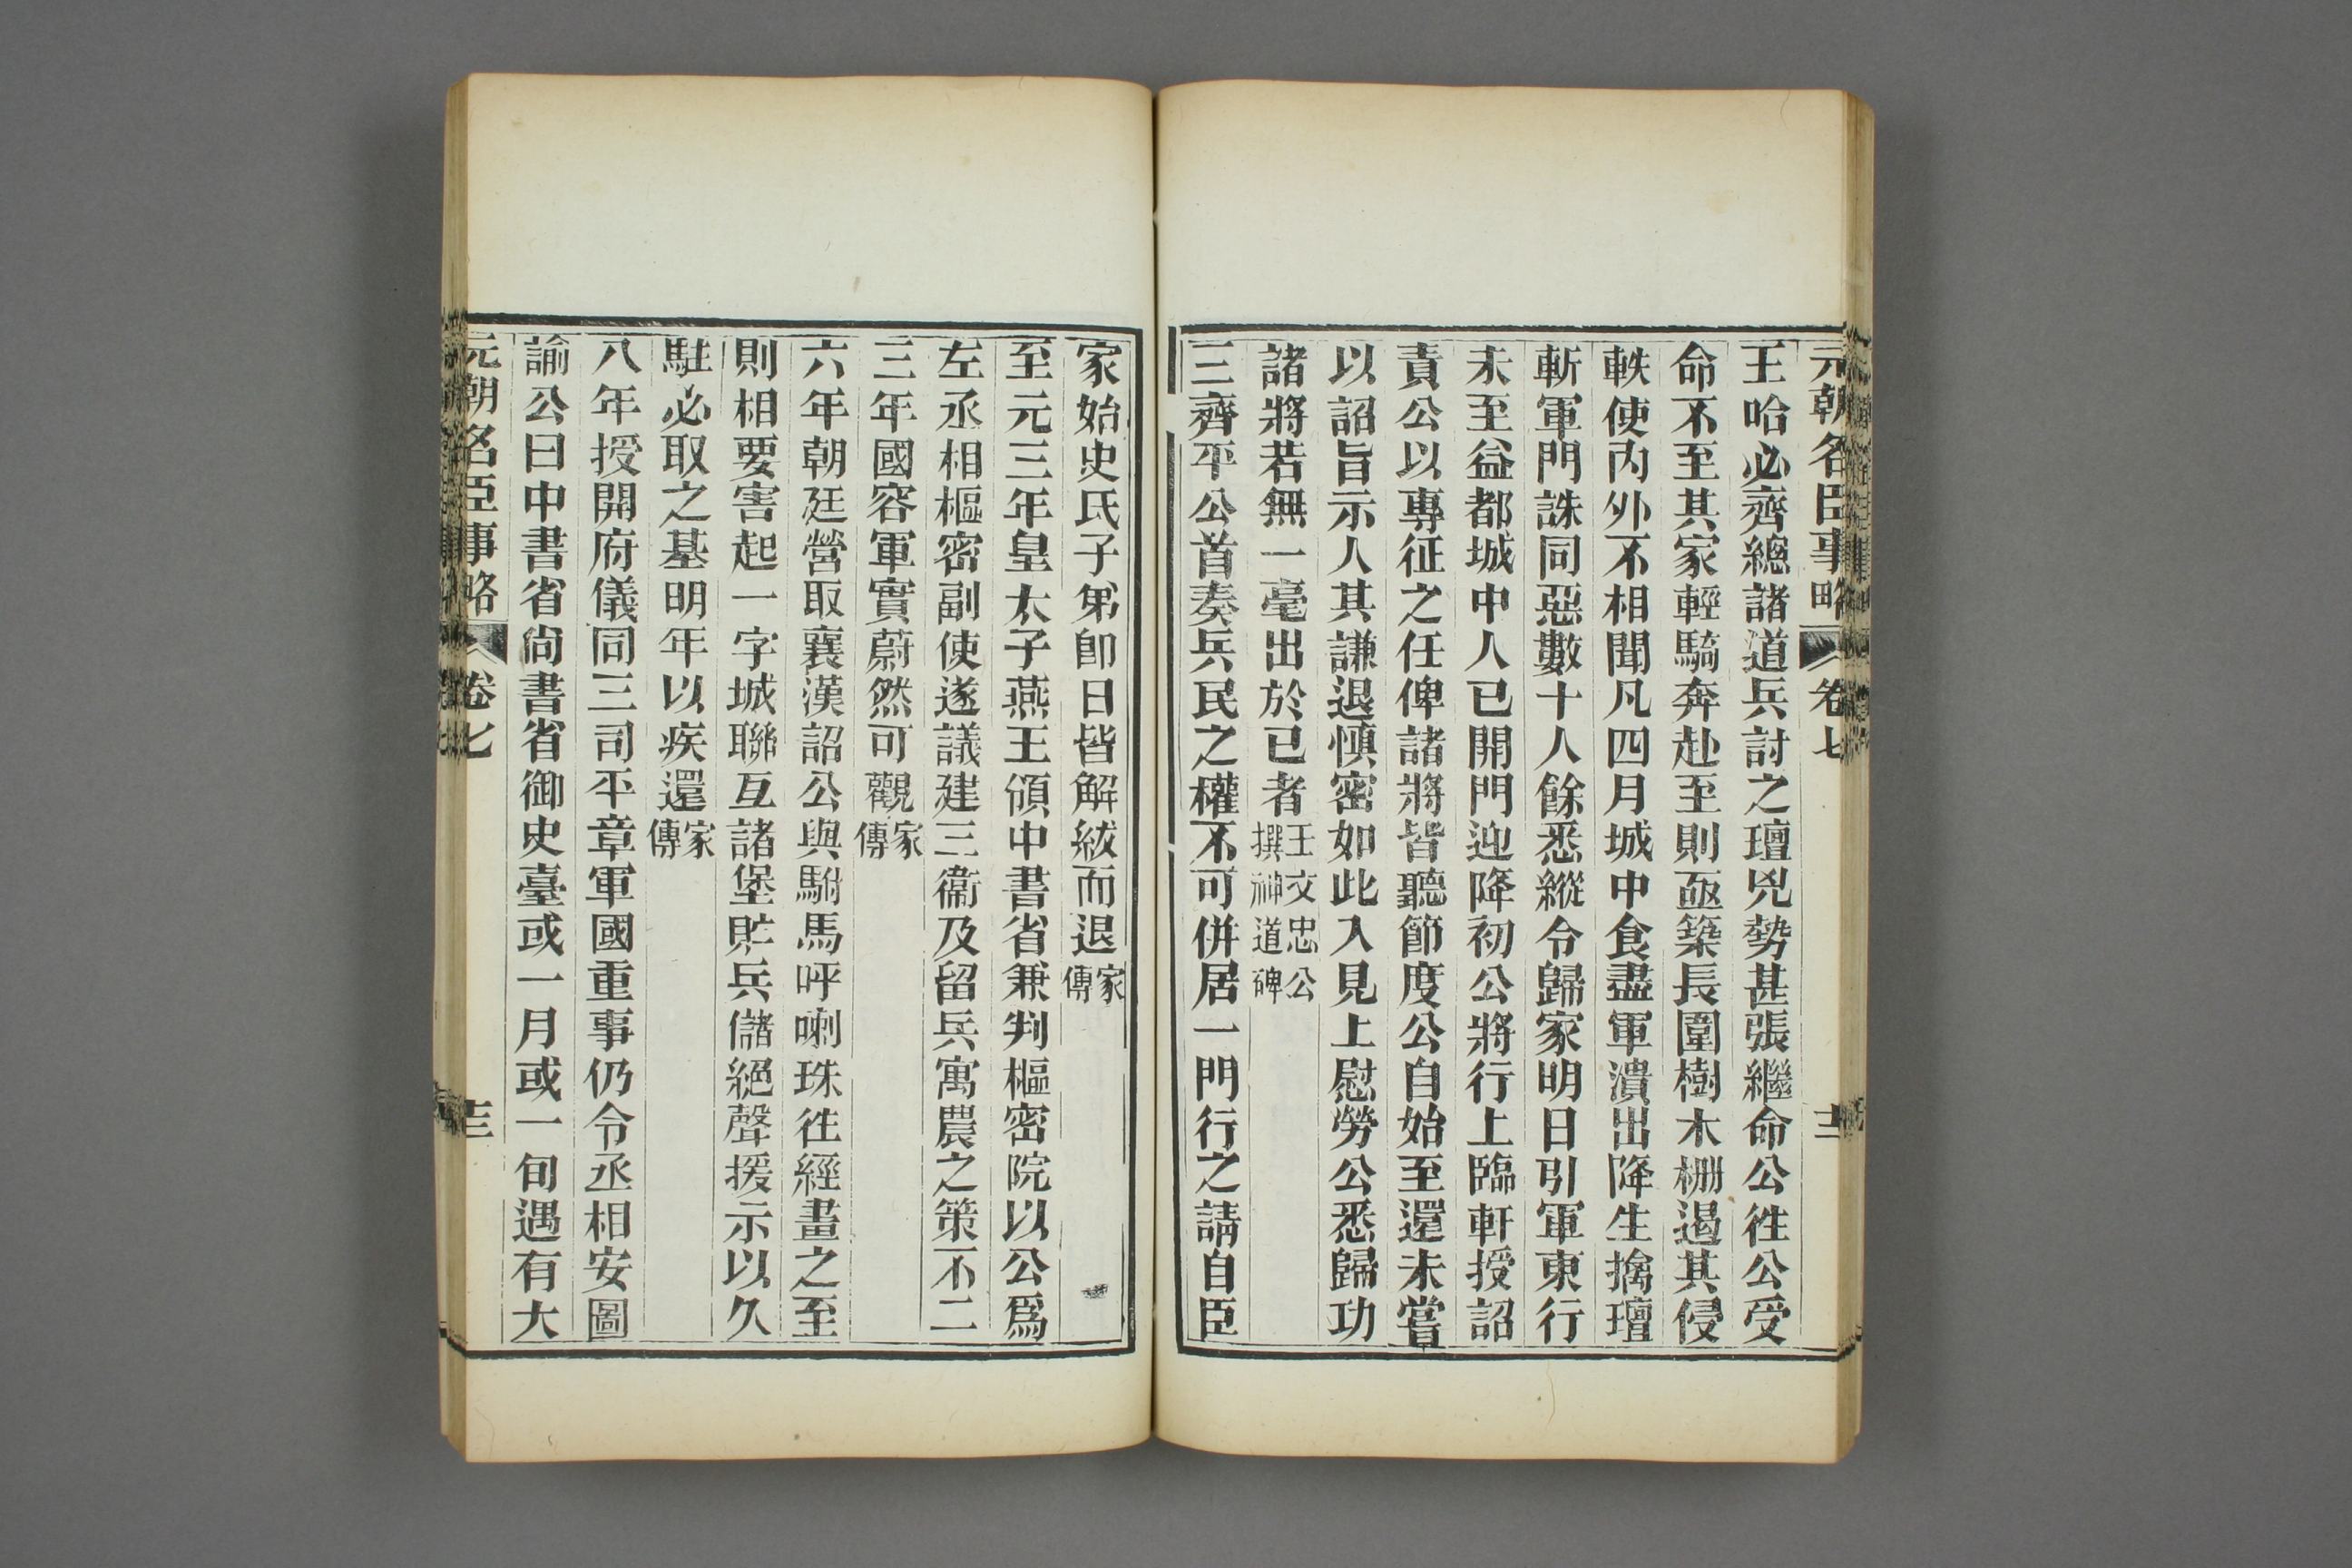 元朝名臣事略 卷七 十二
王哈必齊總諸道兵討之璮兇勢甚張繼命公徃公受
命不至其家輕騎奔赴至則亟築長圍樹木栅遏其侵
軼使內外不相聞凡四月城中食盡軍潰出降生擒璮
斬軍門誅同惡數十人餘悉縱令歸家明日引軍東行
未至益都城中人已開門迎降初公將行上臨軒授詔
責公以專征之任俾諸將皆聽節度公自始至還未嘗
以詔旨示人其謙退愼密如此入見上慰勞公悉歸功
諸將若無一毫出於已者王文忠公撰神道碑
三齊平公首奏兵民之權不可併居一門行之請自臣
家始史氏子弟卽日皆解紱而退家傳
至元三年皇太子燕王領中書省兼判樞密院以公爲
左丞相樞密副使遂議建三衞及留兵寓農之策不二
三年國容軍實蔚然可觀家傳
六年朝廷營取襄漢詔公與駙馬呼喇珠徃經畫之至
則相要害起一字城聯互諸堡貯兵儲絕聲援示以久
駐必取之基明年以疾還家傳
八年授開府儀同三司平章軍國重事仍令丞相安圖
諭公曰中書省尙書省御史臺或一月或一旬遇有大
元朝名臣事略 卷七 十三